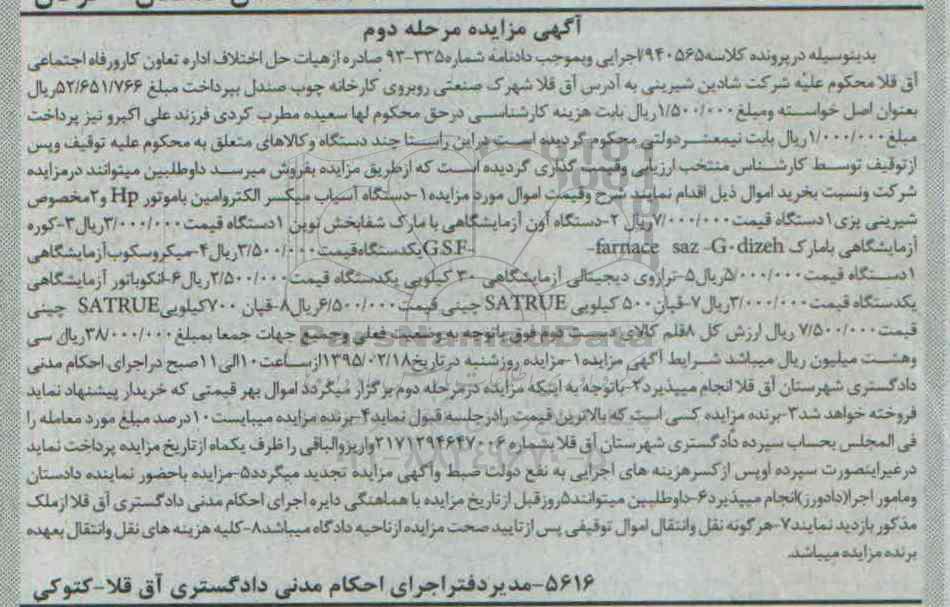 آگهی مزایده مرحله دوم
بدینوسیله درپرونده کلاسه۹۴۰۵۶۵/اجرایی وبموجب دادنامه شماره۳۳۵-۹۳ صادره ازهیات حل اختلاف اداره تعاون کارورفاه اجتماعی
آق قلا محکوم علیه شرکت شادین شیرینی به آدرس آق قلا شهرک صنعتی روبروی کارخانه چوب صندل بپرداخت مبلغ ۵۲/۶۵۱/۷۶۶ریال
بعنوان اصل خواسته ومبلغ۱/۵۰۰/۰۰۰ریال بابت هزینه کارشناسی درحق محکوم لها سعیده مطرب کردی فرزند علی اکبرو نیز پرداخت
مبلغ۱/۰۰۰/۰۰۰ریال بابت نیمعشردولتی محکوم گردیده است دراین راستا چند دستگاه وکالاهای متعلق به محکوم علیه توقیف وپس
ازتوقیف توسط کارشناس منتخب ارزیابی وقیمت گذاری گردیده است که ازطریق مزایده بفروش میرسد داوطلبین میتوانند درمزایده
شرکت ونسبت بخرید اموال ذیل اقدام نمایند شرح وقیمت اموال مورد مزایده۱-دستگاه آسیاب میکسر الکتروامین باموتور Hp و۲مخصوص
شیرینی پزی۱دستگاه قیمت۷/۰۰۰/۰۰۰ریال ۲-دستگاه آون آزمایشگاهی با مارک شفابخش نوین ۱دستگاه قیمت۳/۰۰۰/۰۰۰ریال۳-کوره
آزمایشگاهی بامارک farnace saz -G۰dizeh- -G.S.Fیکدستگاه‌قیمت۳/۵۰۰/۰۰۰ریال۴-میکروسکوپ‌آزمایشگاهی
۱دستگاه قیمت۵/۰۰۰/۰۰۰ریال۵-ترازوی دیجیتالی آزمایشگاهی ۳۰کیلویی یکدستگاه قیمت۲/۵۰۰/۰۰۰ریال۶-انکوباتور آزمایشگاهی
یکدستگاه قیمت۳/۰۰۰/۰۰۰ریال۷-قپان۵۰۰ کیلویی SATRUE چینی قیمت۶/۵۰۰/۰۰۰ریال۸-قپان ۷۰۰کیلویی SATRUE چینی
قیمت۷/۵۰۰/۰۰۰ ریال ارزش کل ۸قلم کالای دست دوم فوق باتوجه به وضعیت فعلی وجمیع جهات جمعا بمبلغ۳۸/۰۰۰/۰۰۰ریال سی
وهشت میلیون ریال میباشد شرایط آگهی مزایده۱-مزایده روزشنبه درتاریخ۱۳۹۵/۰۲/۱۸ازساعت۱۰الی۱۱صبح دراجرای احکام مدنی
دادگستری شهرستان آق قلا انجام میپذیرد۲-باتوجه به اینکه مزایده درمرحله دوم برگزار میگردد اموال بهر قیمتی که خریدار پیشنهاد نماید
فروخته خواهد شد۳-برنده مزایده کسی است که بالاترین قیمت رادرجلسه قبول نماید۴-برنده مزایده میبایست۱۰درصد مبلغ مورد معامله را
فی المجلس بحساب سپرده دادگستری شهرستان آق قلا بشماره ۲۱۷۱۲۹۴۶۴۷۰۰۶واریزوالباقی را ظرف یکماه ازتاریخ مزایده پرداخت نماید
درغیراینصورت سپرده اوپس ازکسرهزینه های اجرایی به نفع دولت ضبط وآگهی مزایده تجدید میگردد۵-مزایده باحضور نماینده دادستان
ومامور اجرا(دادورز)انجام میپذیرد۶-داوطلبین میتوانند۵روزقبل ازتاریخ مزایده با هماهنگی دایره اجرای احکام مدنی دادگستری آق قلا ازملک
مذکور بازدید نمایند۷-هرگونه نقل وانتقال اموال توقیفی پس ازتایید صحت مزایده ازناحیه دادگاه میباشد۸-کلیه هزینه های نقل وانتقال بعهده
برنده مزایده میباشد.
۵۶۱۶-مدیردفتراجرای احکام مدنی دادگستری آق قلا-کتوکی